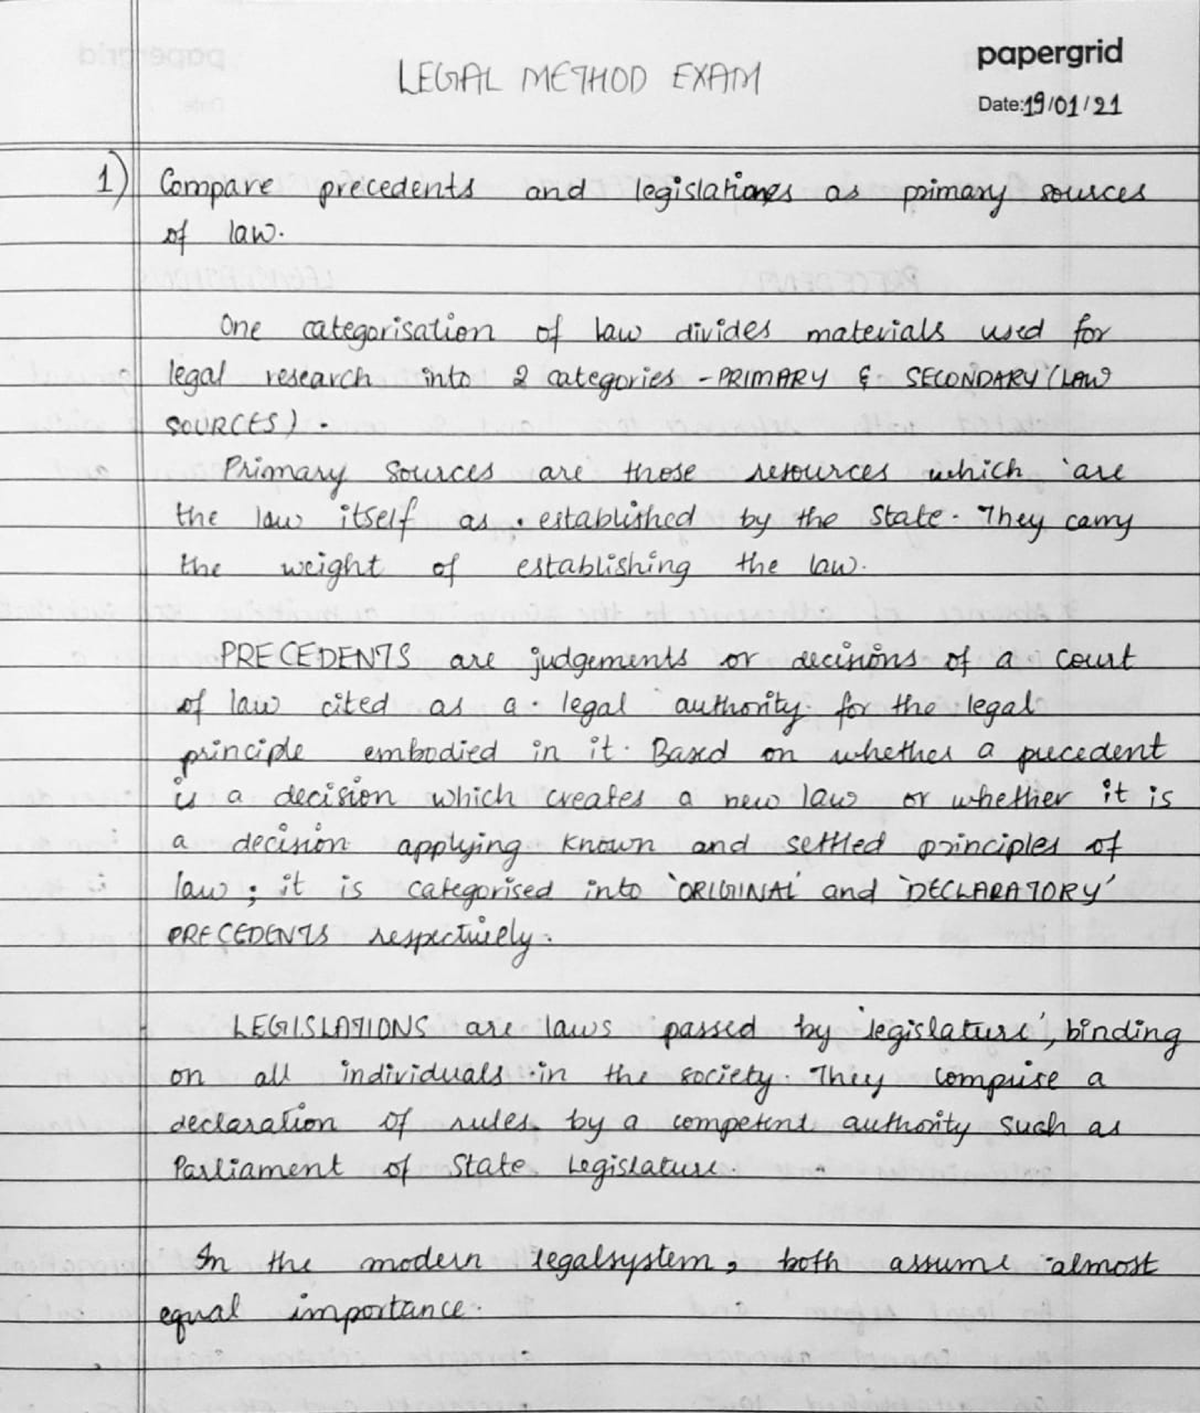 papergrid
LEGAL METHOD EXAM
Date:19/01/21
1) Compare precedents and legislationes as primary sources
of law.
One categorisation of law divides materials used for
legal research into 2 categories - PRIMARY & SECONDARY (LAW
SOURCES).
Primary Sources are those resources which are
the law itself as established by the State. They carry
the weight of establishing the law.
PRECEDENTS are judgements or decisions of a court
of law cited as a legal authority for the legal
principle embodied in it. Based on whether a precedent
is a decision which creates a new law or whether it is
a decision applying known and settled principles of
law; it is categorised into 'ORIGINAL' and 'DECLARATORY'
PRECEDENTS respectively.
LEGISLATIONS are laws passed by 'legislature', binding
on all individuals in the society. They comprise a
declaration of rules by a competent authority such as
Parliament of State Legislature.
In the modern legalsystem, both assume almost
equal importance.